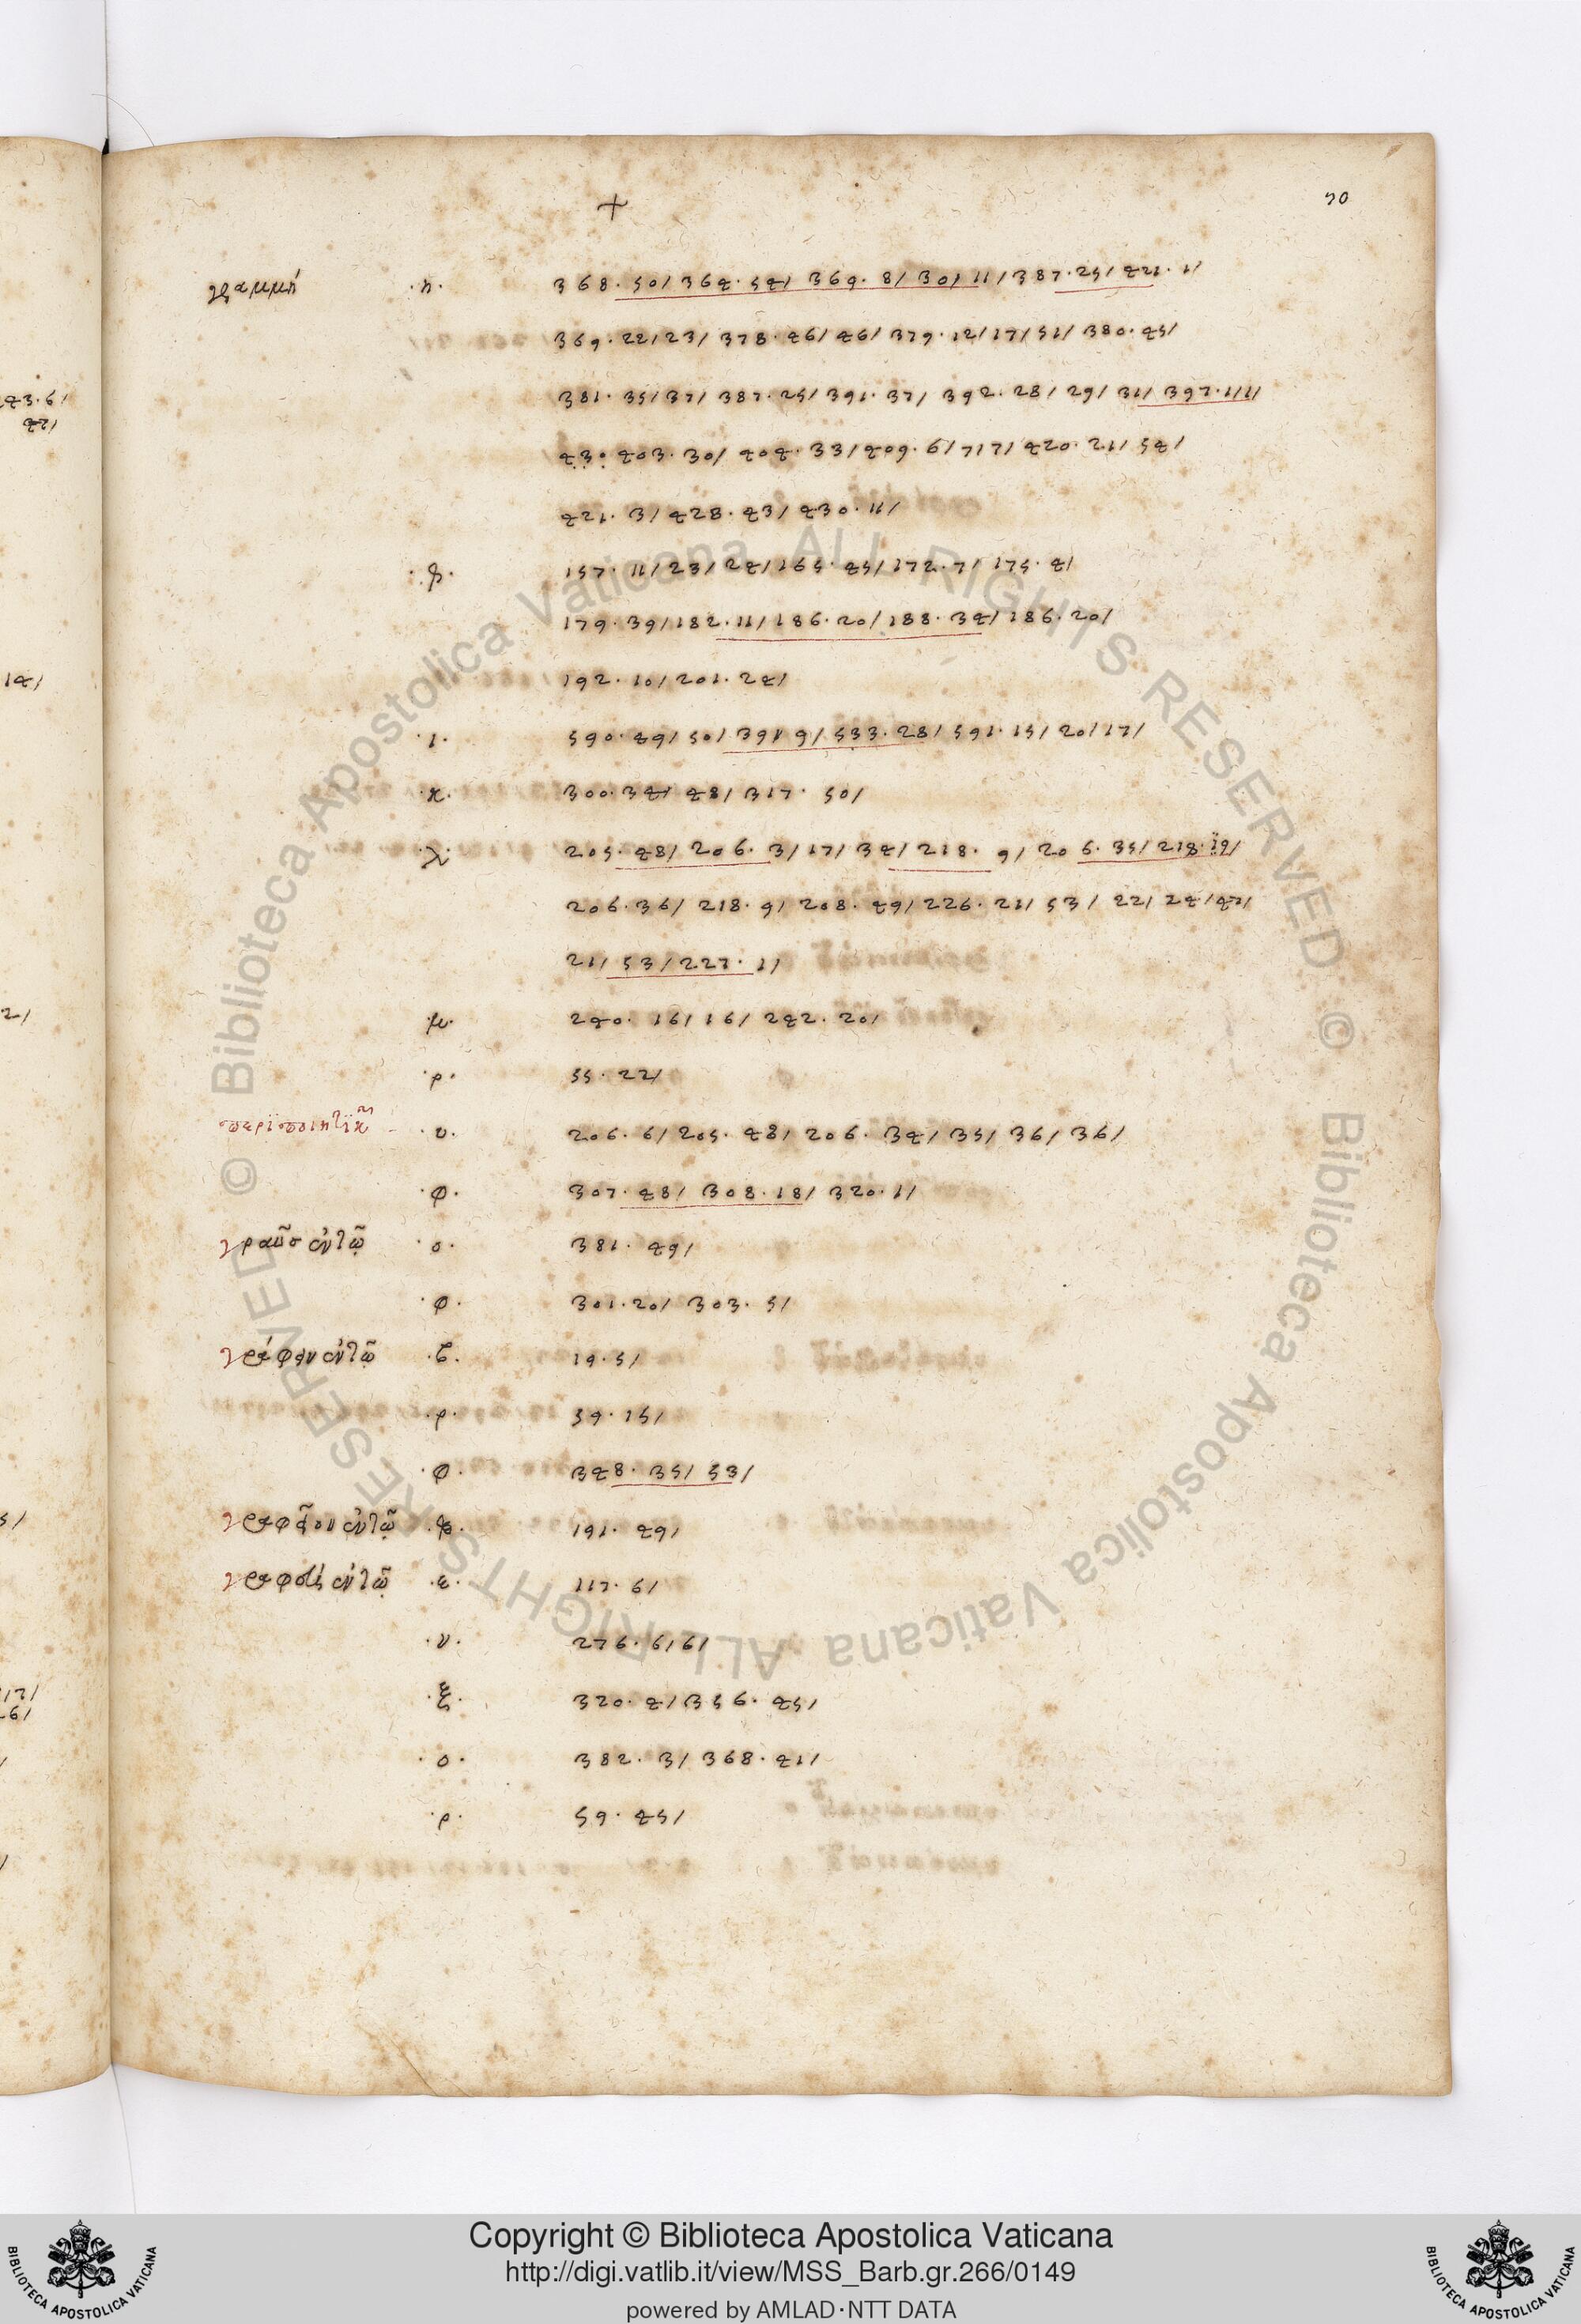 + 70
γραμμή ·η· 368·50/ 364·54/ 369·8/ 30/ 11/ 387·25/ 421·1/
369·22/ 23/ 378·46/ 46/ 379·12/ 17/ 51/ 380·45/
381·35/ 37/ 387·25/ 391·37/ 392·28/ 29/ 31/ 397·1/1/
43· 403·30/ 404·33/ 409·6/ 7/ 7/ 420·21/ 54/
421·3/ 428·43/ 430·11/
157·11/ 23/ 24/ 165·45/ 172·7/ 175·4/
179·39/ 182·11/ 186·20/ 188·34/ 186·20/
192·10/ 201·24/
·ι· 590·49/ 50/ 391 9/ 533·28/ 591·15/ 20/ 17/
·κ· 300·34/ 48/ 317·50/
·λ· 205·48/ 206·3/ 17/ 34/ 218·9/ 206·35/ 218·19/
206·36/ 218·9/ 208·49/ 226·21/ 53/ 22/ 24/ 42/
21/ 53/ 227·1/
·μ· 240·16/ 16/ 242·20/
·ρ· 55·22/
·υ· 206·6/ 205·48/ 206·34/ 35/ 36/ 36/
·φ· 307·48/ 308·18/ 320·1/
γραῦσ ἐν τῷ ·ο· 381·49/
·φ· 301·20/ 303·5/
γράφειν ἐν τῷ ·ζ· 19·5/
·ρ· 59·15/
·φ· 348·35/ 53/
γραφεῖον ἐν τῷ 191·49/
ἐν τῷ ·ε· 117·6/
·ν· 276·6/ 6/
·ξ· 320·4/ 356·45/
·ο· 382·3/ 368·41/
·ρ· 59·45/
43·6/
42/
14/
2/
5/
12/
Biblioteca Apostolica Vaticana ALL RIGHTS RESERVED © Biblioteca Apostolica Vaticana ALL RIGHTS RESERVED ©
Copyright © Biblioteca Apostolica Vaticana
http://digi.vatlib.it/view/MSS_Barb.gr.266/0149
powered by AMLAD·NTT DATA
BIBLIOTECA APOSTOLICA VATICANA
BIBLIOTECA APOSTOLICA VATICANA